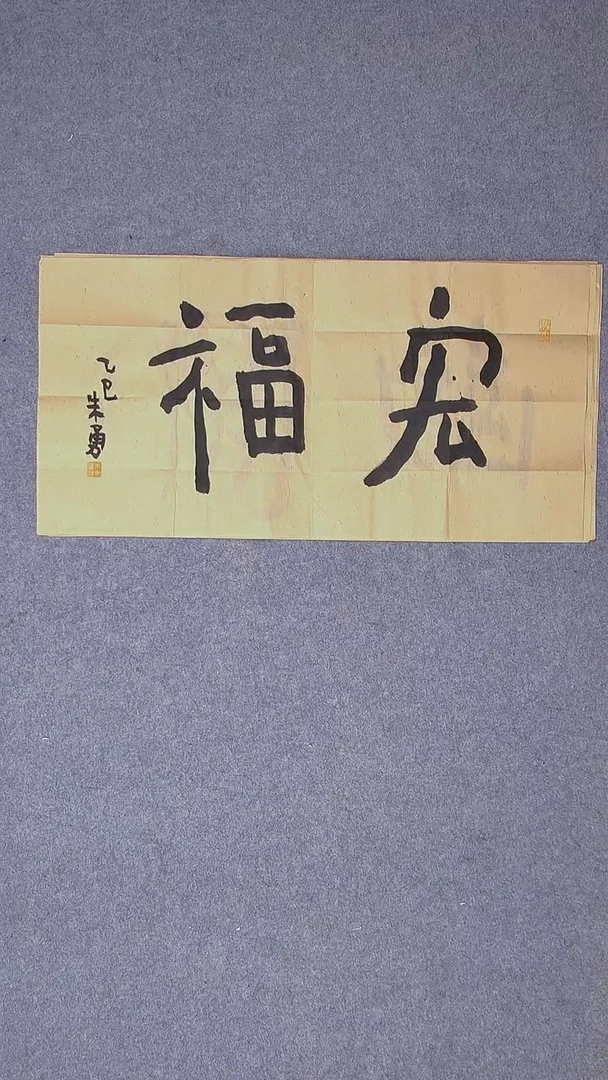 宏福
乙巳
朱勇